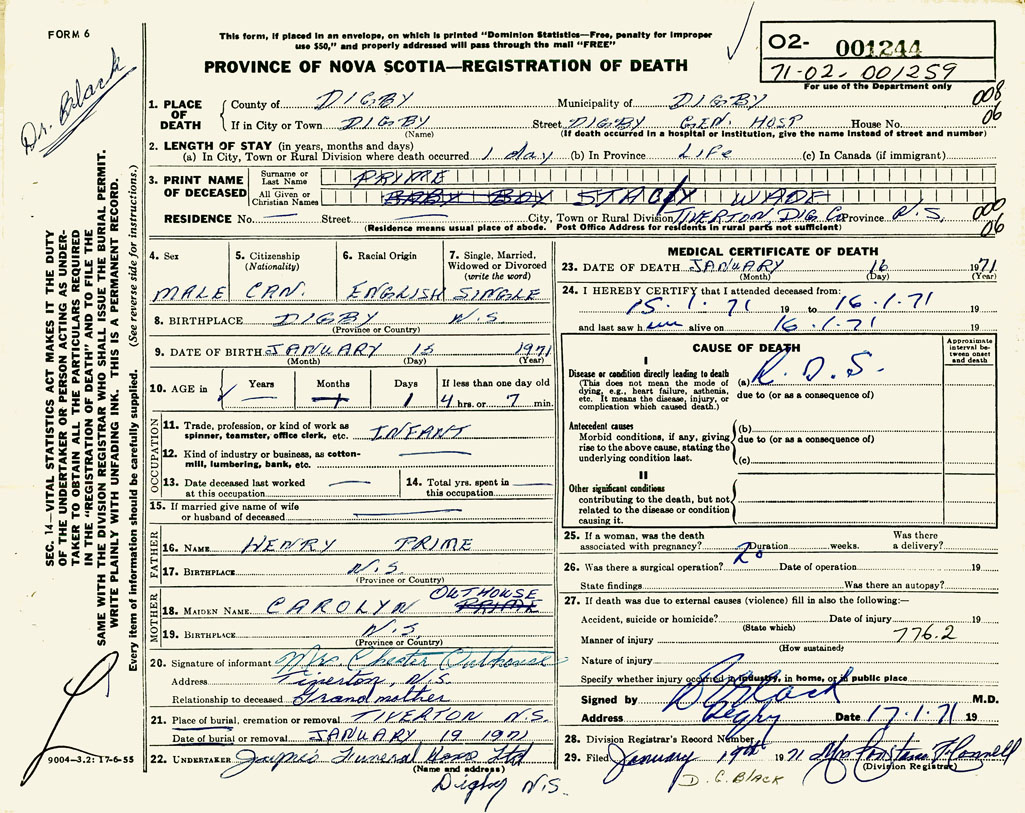 FORM 6
This form, if placed in an envelope, on which is printed "Dominion Statistics—Free, penalty for improper
use $50," and properly addressed will pass through the mail "FREE"
PROVINCE OF NOVA SCOTIA—REGISTRATION OF DEATH
O2- 001244
71-02-001259
For use of the Department only
Dr. Black
SEC. 14—VITAL STATISTICS ACT MAKES IT THE DUTY
OF THE UNDERTAKER OR PERSON ACTING AS UNDER-
TAKER TO OBTAIN ALL THE PARTICULARS REQUIRED
IN THE "REGISTRATION OF DEATH" AND TO FILE THE
SAME WITH THE DIVISION REGISTRAR WHO SHALL ISSUE THE BURIAL PERMIT.
WRITE PLAINLY WITH UNFADING INK. THIS IS A PERMANENT RECORD.
Every item of information should be carefully supplied. (See reverse side for instructions.)
1. PLACE OF DEATH
County of DIGBY Municipality of DIGBY 008
If in City or Town DIGBY Street DIGBY GEN. HOSP House No. 06
(Name) (If death occurred in a hospital or institution, give the name instead of street and number)
2. LENGTH OF STAY (in years, months and days)
(a) In City, Town or Rural Division where death occurred 1 day (b) In Province LIFE (c) In Canada (if immigrant)
3. PRINT NAME OF DECEASED
Surname or Last Name PRIME
All Given or Christian Names BABY BOY STACY WADE
RESIDENCE No. — Street — City, Town or Rural Division TIVERTON, DIG Co Province N.S. 000
(Residence means usual place of abode. Post Office Address for residents in rural parts not sufficient) 06
4. Sex 5. Citizenship (Nationality) 6. Racial Origin 7. Single, Married, Widowed or Divorced (write the word)
MALE CAN. ENGLISH SINGLE
8. BIRTHPLACE DIGBY N.S.
(Province or Country)
9. DATE OF BIRTH JANUARY 15 1971
(Month) (Day) (Year)
10. AGE in Years Months Days If less than one day old
— 1 4 hrs. or 7 min.
OCCUPATION
11. Trade, profession, or kind of work as spinner, teamster, office clerk, etc. INFANT
12. Kind of industry or business, as cotton-mill, lumbering, bank, etc. —
13. Date deceased last worked at this occupation — 14. Total yrs. spent in this occupation —
15. If married give name of wife or husband of deceased —
FATHER
16. NAME HENRY PRIME
17. BIRTHPLACE N.S.
(Province or Country)
MOTHER
18. MAIDEN NAME CAROLYN PRIME OUTHOUSE
19. BIRTHPLACE N.S.
(Province or Country)
20. Signature of informant Mrs Chester Outhouse
Address Tiverton, N.S.
Relationship to deceased Grandmother
21. Place of burial, cremation or removal TIVERTON N.S.
Date of burial or removal JANUARY 19 1971
22. UNDERTAKER Funeral Home Ltd
(Name and address)
Digby N.S.
9004—3.2: 17-6-55
MEDICAL CERTIFICATE OF DEATH
23. DATE OF DEATH JANUARY 16 1971
(Month) (Day) (Year)
24. I HEREBY CERTIFY that I attended deceased from:
15.1.71 19 to 16.1.71 19
and last saw him alive on 16.1.71 19
CAUSE OF DEATH
Approximate interval between onset and death
I
Disease or condition directly leading to death (a) R.D.S.
(This does not mean the mode of dying, e.g., heart failure, asthenia, etc. It means the disease, injury, or complication which caused death.)
due to (or as a consequence of)
Antecedent causes (b)
Morbid conditions, if any, giving rise to the above cause, stating the underlying condition last.
due to (or as a consequence of)
(c)
II
Other significant conditions
contributing to the death, but not related to the disease or condition causing it.
25. If a woman, was the death associated with pregnancy? Duration weeks. Was there a delivery?
26. Was there a surgical operation? No Date of operation 19
State findings Was there an autopsy?
27. If death was due to external causes (violence) fill in also the following:—
Accident, suicide or homicide? Date of injury 19
(State which)
Manner of injury 776.2
(How sustained)
Nature of injury
Specify whether injury occurred in industry, in home, or in public place
Signed by D C Black M.D.
Address Digby Date 17.1.71 19
28. Division Registrar's Record Number
29. Filed January 19th 1971 Mrs
(Division Registrar)
D. C. BLACK